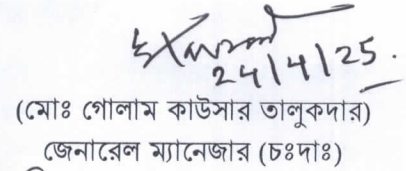 24/4/25.
(মোঃ গোলাম কাউসার তালুকদার)
জেনারেল ম্যানেজার (চঃদাঃ)